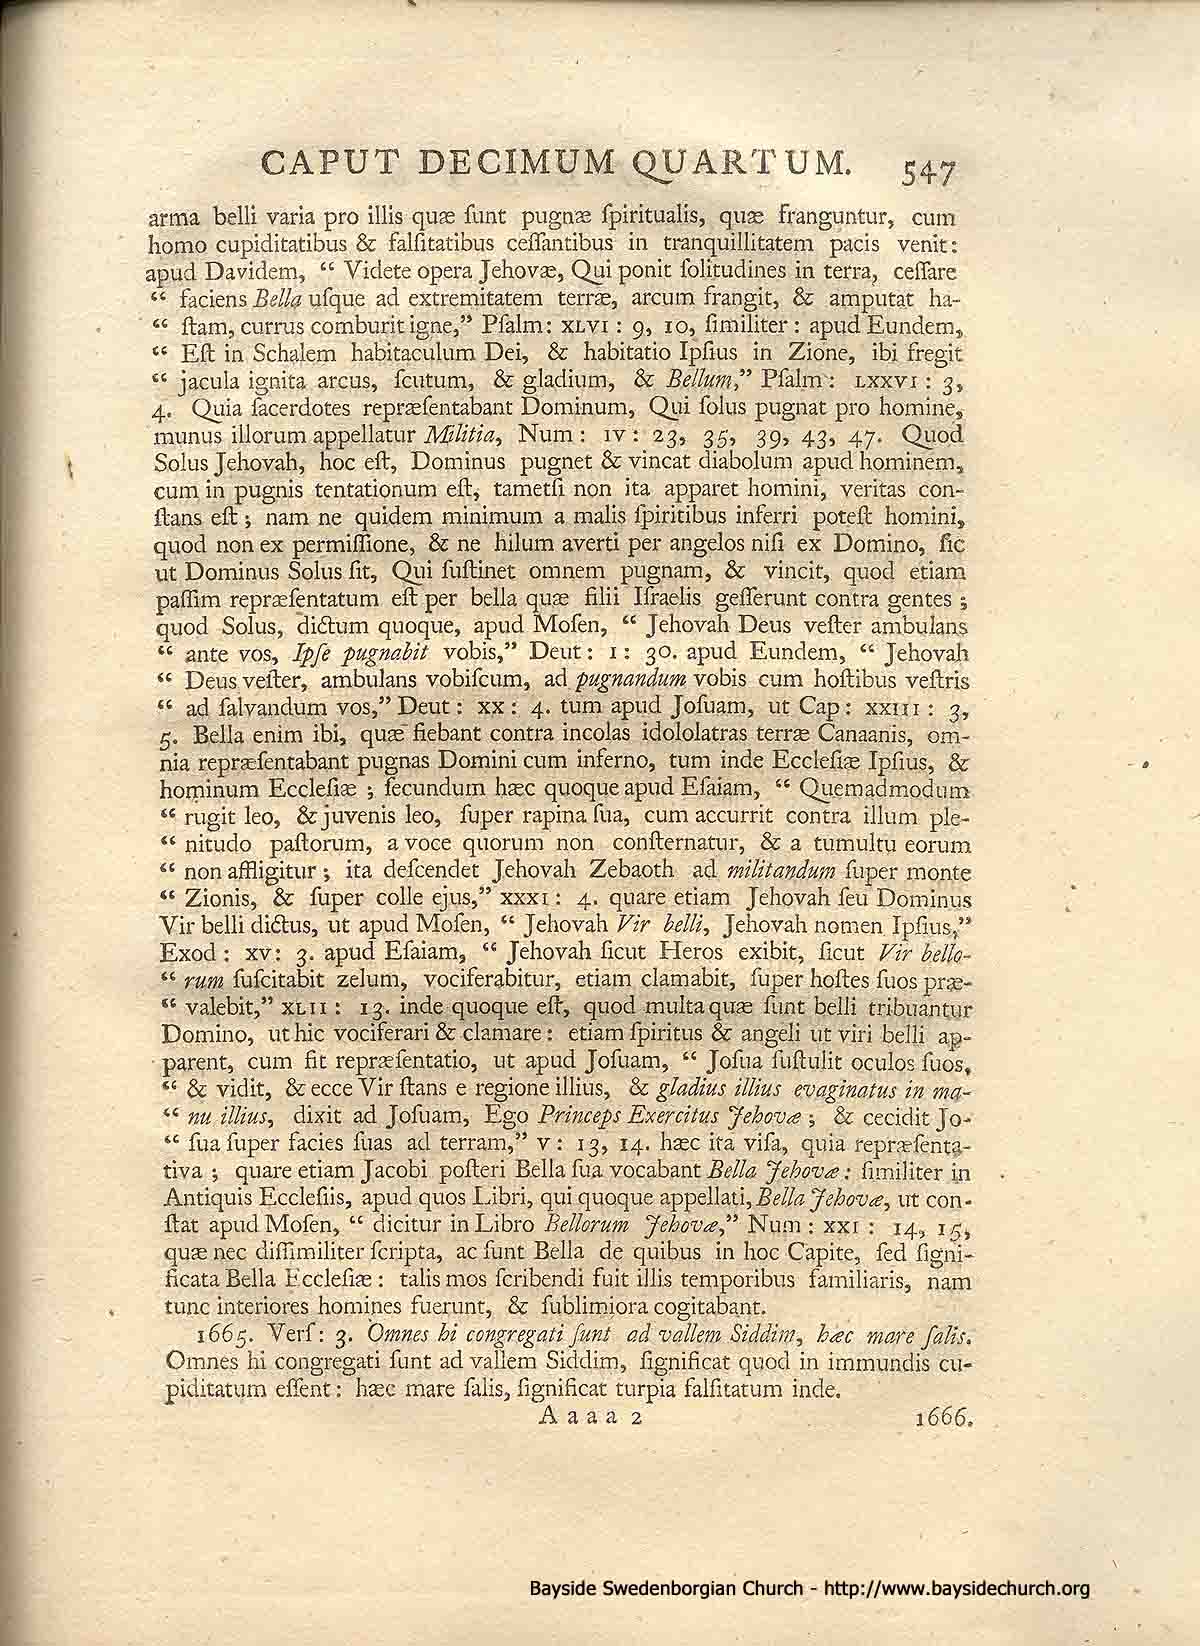 CAPUT DECIMUM QUARTUM. 547
arma belli varia pro illis quæ ſunt pugnæ ſpiritualis, quæ franguntur, cum
homo cupiditatibus & falſitatibus ceſſantibus in tranquillitatem pacis venit:
apud Davidem, “ Videte opera Jehovæ, Qui ponit ſolitudines in terra, ceſſare
“ faciens Bella uſque ad extremitatem terræ, arcum frangit, & amputat ha-
“ ſtam, currus comburit igne,” Pſalm: XLVI: 9, 10, ſimiliter: apud Eundem,
“ Eſt in Schalem habitaculum Dei, & habitatio Ipſius in Zione, ibi fregit
“ jacula ignita arcus, ſcutum, & gladium, & Bellum,” Pſalm: LXXVI: 3,
4. Quia ſacerdotes repræſentabant Dominum, Qui ſolus pugnat pro homine,
munus illorum appellatur Militia, Num: IV: 23, 35, 39, 43, 47. Quod
Solus Jehovah, hoc eſt, Dominus pugnet & vincat diabolum apud hominem,
cum in pugnis tentationum eſt, tametſi non ita apparet homini, veritas con-
ſtans eſt; nam ne quidem minimum a malis ſpiritibus inferri poteſt homini,
quod non ex permiſſione, & ne hilum averti per angelos niſi ex Domino, ſic
ut Dominus Solus ſit, Qui ſuſtinet omnem pugnam, & vincit, quod etiam
paſſim repræſentatum eſt per bella quæ filii Iſraelis geſſerunt contra gentes;
quod Solus, dictum quoque, apud Moſen, “ Jehovah Deus veſter ambulans
“ ante vos, Ipſe pugnabit vobis,” Deut: I: 30. apud Eundem, “ Jehovah
“ Deus veſter, ambulans vobiſcum, ad pugnandum vobis cum hoſtibus veſtris
“ ad ſalvandum vos,” Deut: XX: 4. tum apud Joſuam, ut Cap: XXIII: 3,
5. Bella enim ibi, quæ fiebant contra incolas idololatras terræ Canaanis, om-
nia repræſentabant pugnas Domini cum inferno, tum inde Eccleſiæ Ipſius, &
hominum Eccleſiæ; ſecundum hæc quoque apud Eſaiam, “ Quemadmodum
“ rugit leo, & juvenis leo, ſuper rapina ſua, cum accurrit contra illum ple-
“ nitudo paſtorum, a voce quorum non conſternatur, & a tumultu eorum
“ non affligitur; ita deſcendet Jehovah Zebaoth ad militandum ſuper monte
“ Zionis, & ſuper colle ejus,” XXXI: 4. quare etiam Jehovah ſeu Dominus
Vir belli dictus, ut apud Moſen, “ Jehovah Vir belli, Jehovah nomen Ipſius,”
Exod: XV: 3. apud Eſaiam, “ Jehovah ſicut Heros exibit, ſicut Vir bello-
“ rum ſuſcitabit zelum, vociferabitur, etiam clamabit, ſuper hoſtes ſuos præ-
“ valebit,” XLII: 13. inde quoque eſt, quod multa quæ ſunt belli tribuantur
Domino, ut hic vociferari & clamare: etiam ſpiritus & angeli ut viri belli ap-
parent, cum fit repræſentatio, ut apud Joſuam, “ Joſua ſuſtulit oculos ſuos,
“ & vidit, & ecce Vir ſtans e regione illius, & gladius illius evaginatus in ma-
“ nu illius, dixit ad Joſuam, Ego Princeps Exercitus Jehovæ; & cecidit Jo-
“ ſua ſuper facies ſuas ad terram,” V: 13, 14. hæc ita viſa, quia repræſenta-
tiva; quare etiam Jacobi poſteri Bella ſua vocabant Bella Jehovæ: ſimiliter in
Antiquis Eccleſiis, apud quos Libri, qui quoque appellati, Bella Jehovæ, ut con-
ſtat apud Moſen, “ dicitur in Libro Bellorum Jehovæ,” Num: XXI: 14, 15,
quæ nec diſſimiliter ſcripta, ac ſunt Bella de quibus in hoc Capite, ſed ſigni-
ficata Bella Eccleſiæ: talis mos ſcribendi fuit illis temporibus familiaris, nam
tunc interiores homines fuerunt, & ſublimiora cogitabant.
1665. Verſ: 3. Omnes hi congregati ſunt ad vallem Siddim, hæc mare ſalis.
Omnes hi congregati ſunt ad vallem Siddim, ſignificat quod in immundis cu-
piditatum eſſent: hæc mare ſalis, ſignificat turpia falſitatum inde.
A a a a 2 1666.
Bayside Swedenborgian Church - http://www.baysidechurch.org